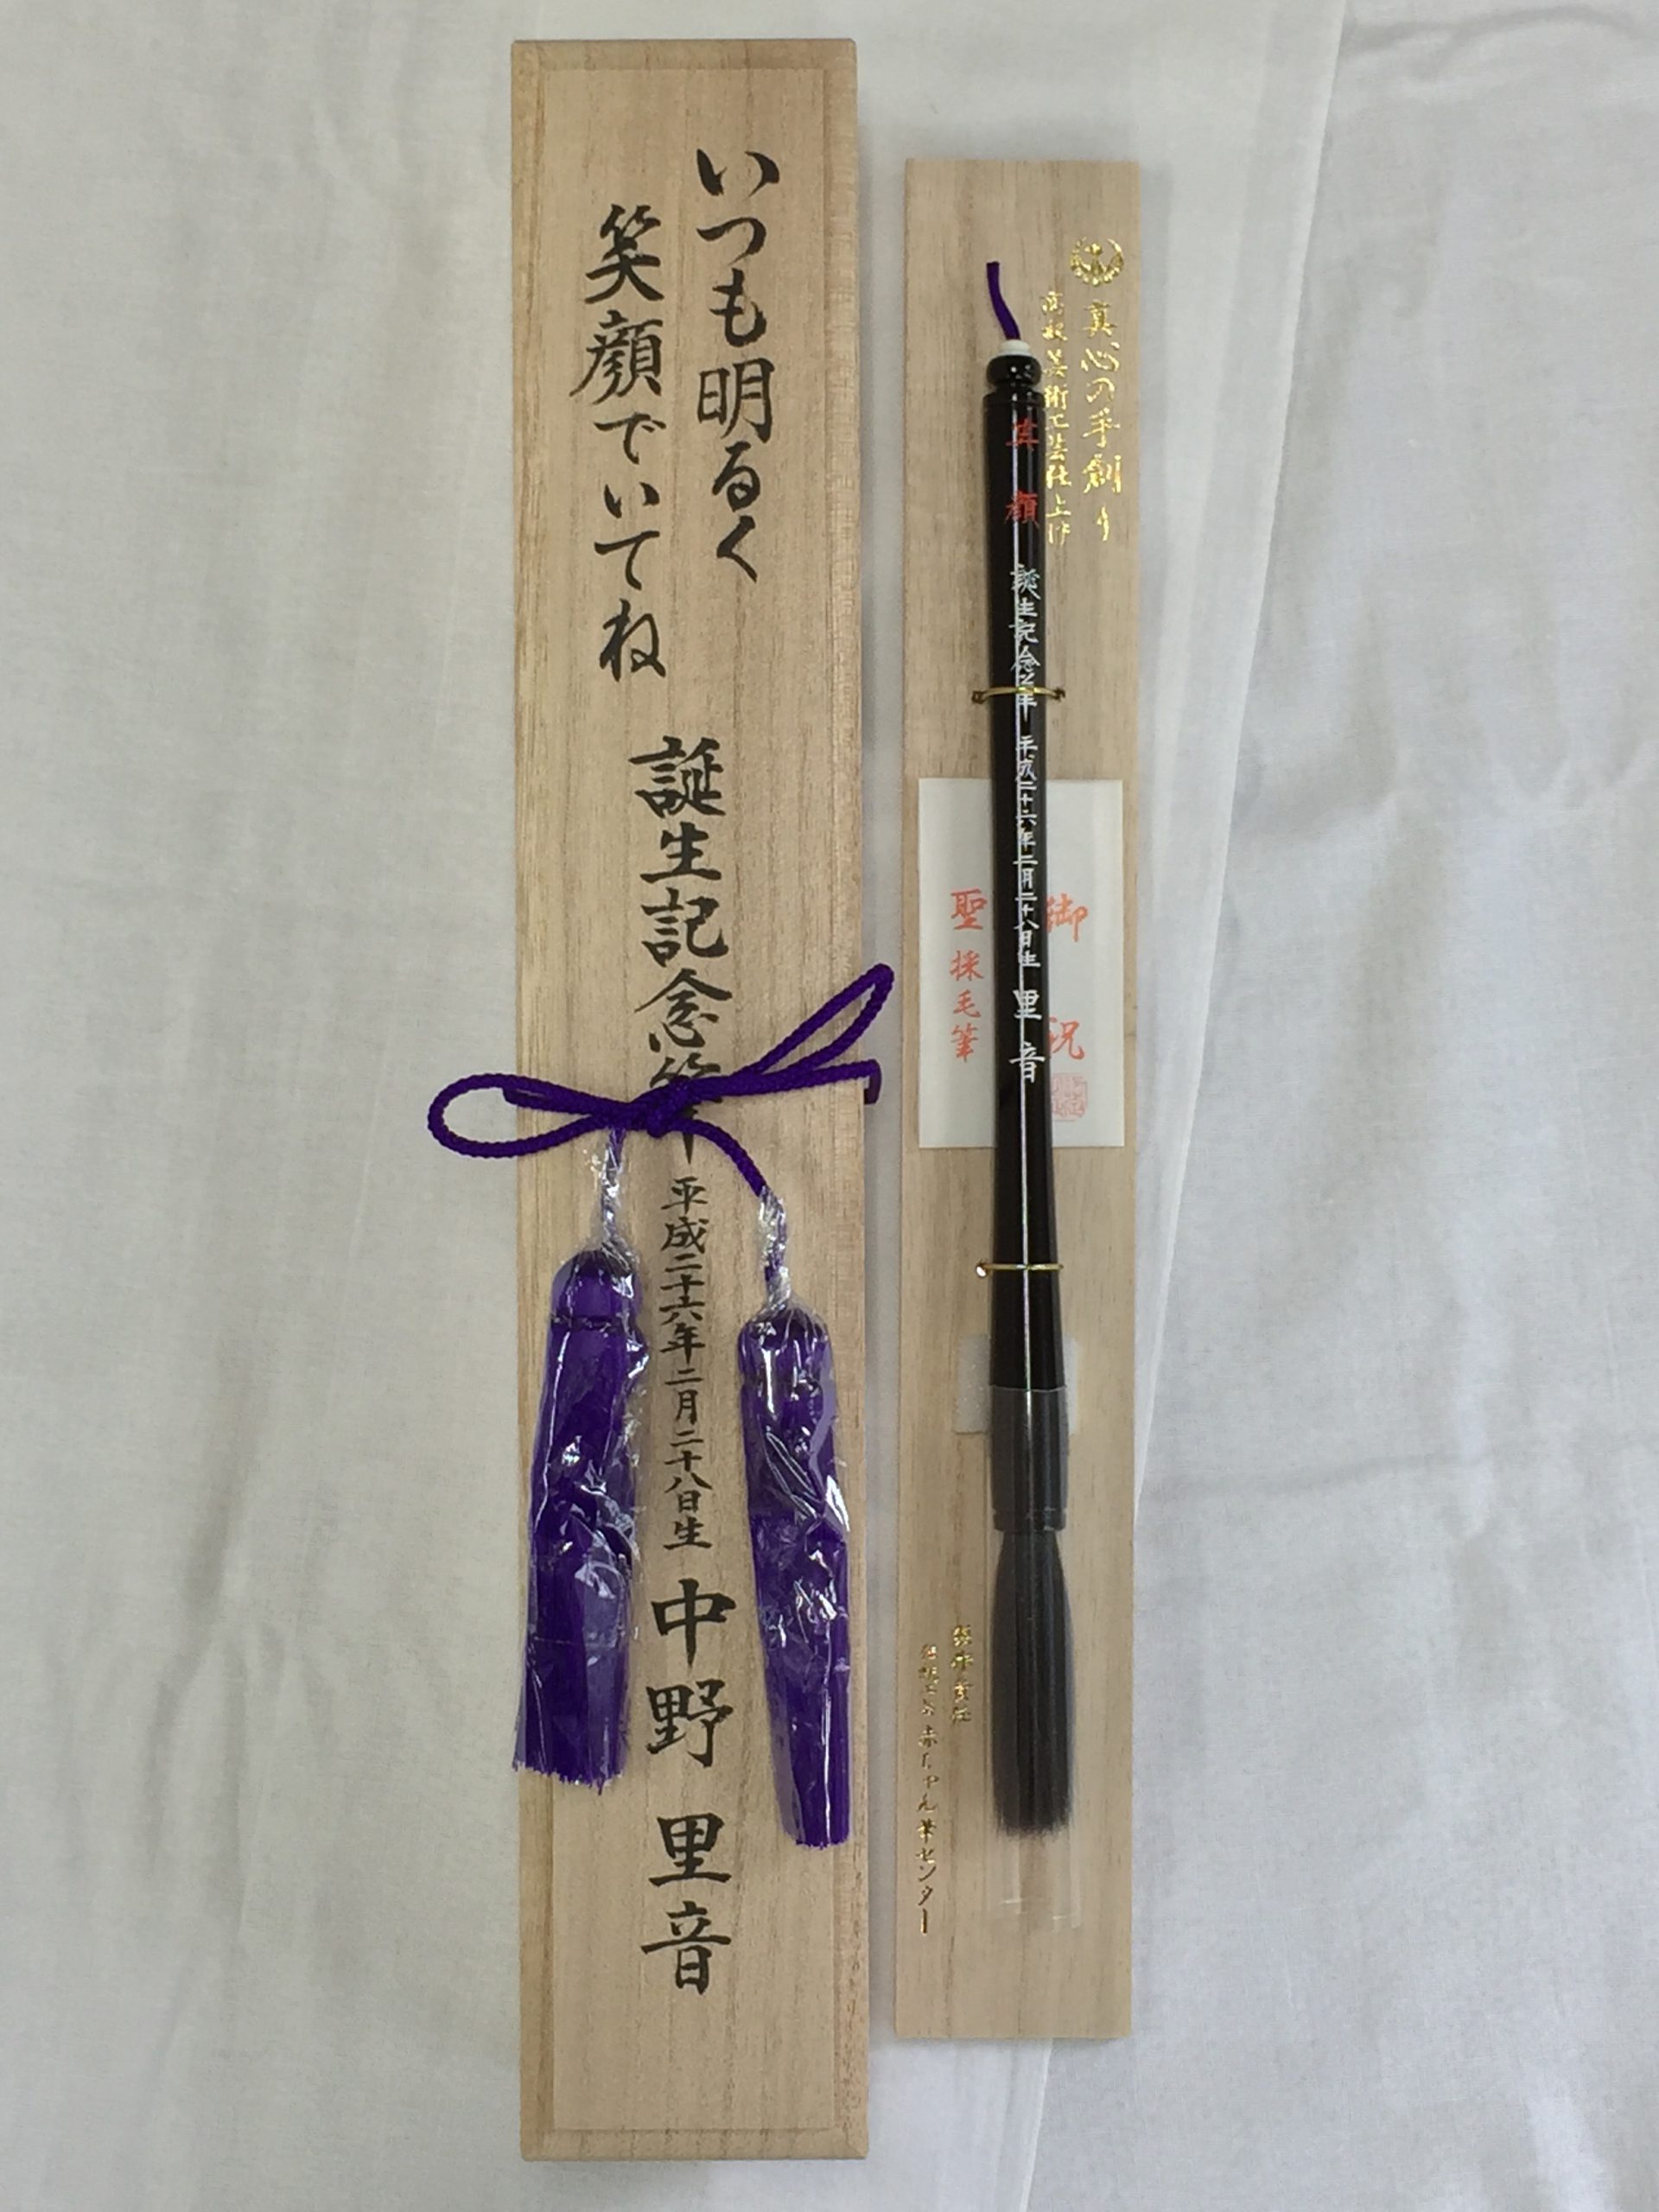 いつも明るく
笑顔でいてね
誕生記念筆 平成二十六年二月二十八日生 中野 里音
真心の手創り
高級美術工芸仕上作
笑顔 誕生記念筆 平成二十六年二月二十八日生 里音
御祝
聖採毛筆
赤ちゃん筆センター